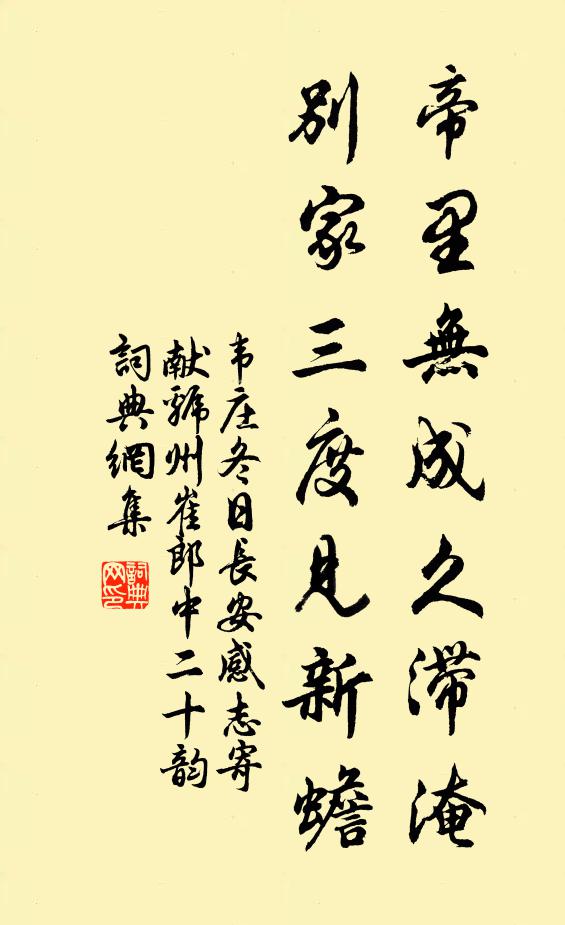 帝里無成久滯淹
別家三度見新蟾
韦庄冬日長安感志寄
献虢州崔郎中二十韵
詞典網集
詞典
网印